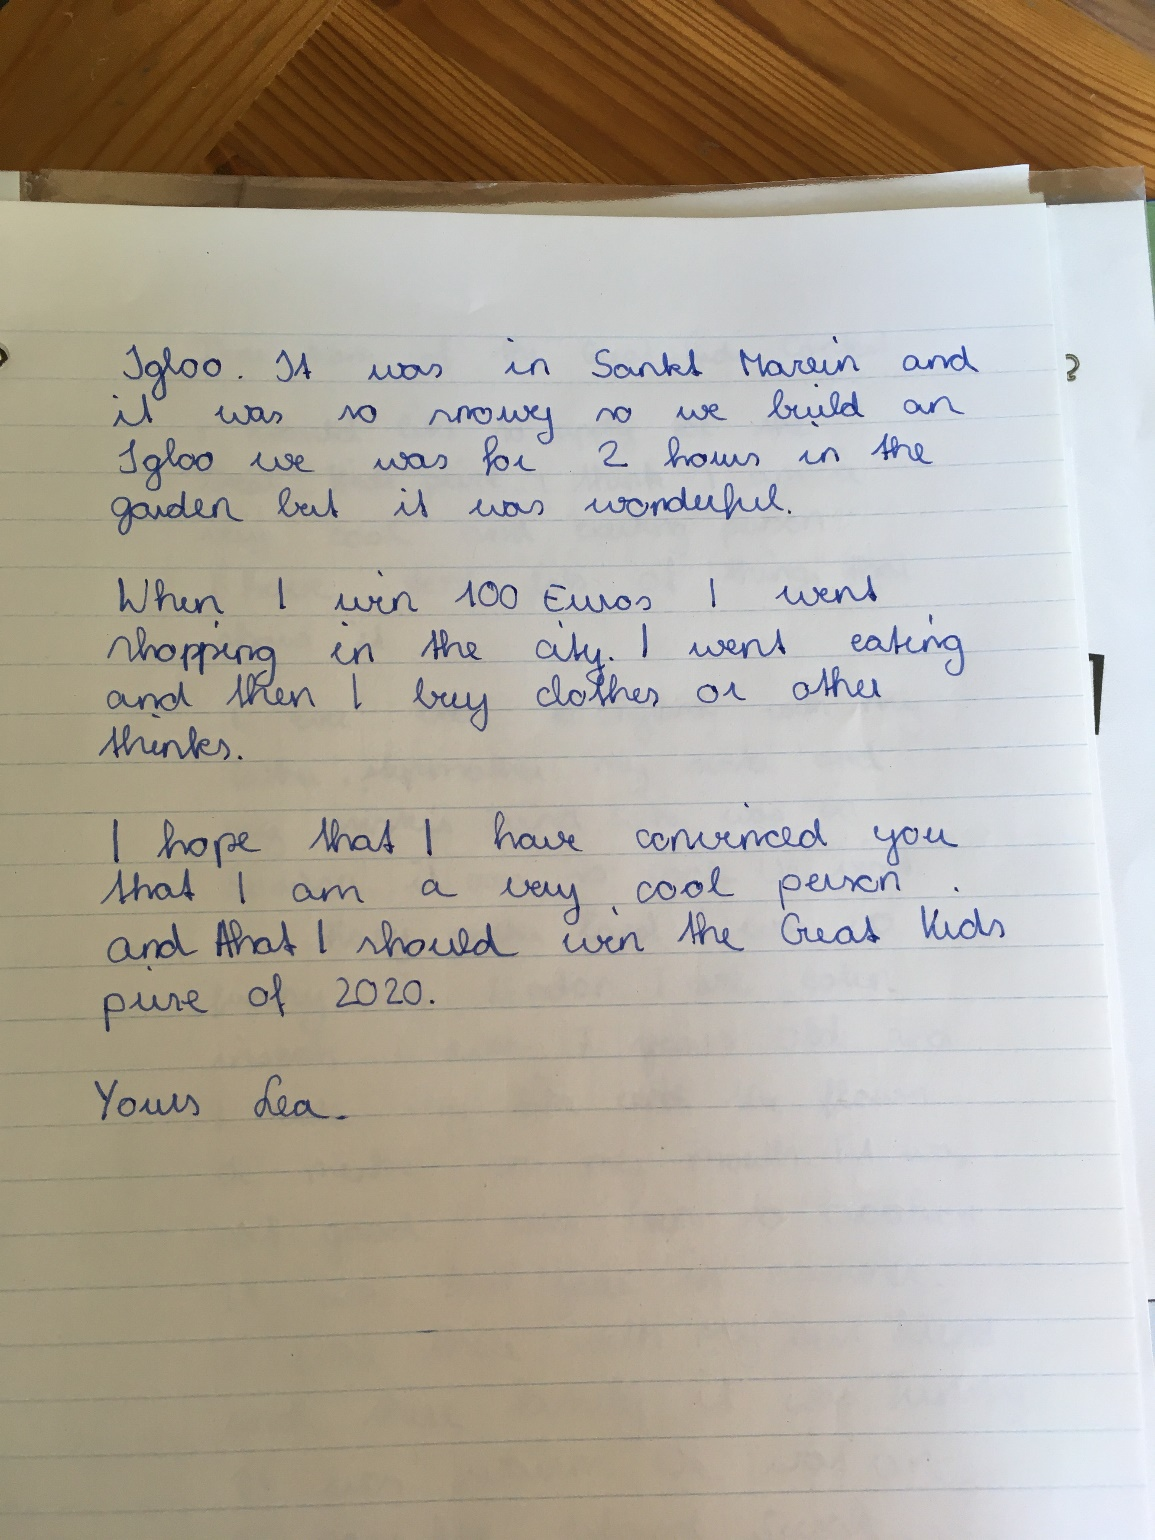 Igloo. It was in Sankt Marein and
it was so snowy so we build an
Igloo we was for 2 hours in the
garden but it was wonderful.
When I win 100 Euros I went
shopping in the city. I went eating
and then I buy clothes or other
thinks.
I hope that I have convinced you
that I am a very cool person .
and that I should win the Great Kids
prize of 2020.
Yours Lea.
?